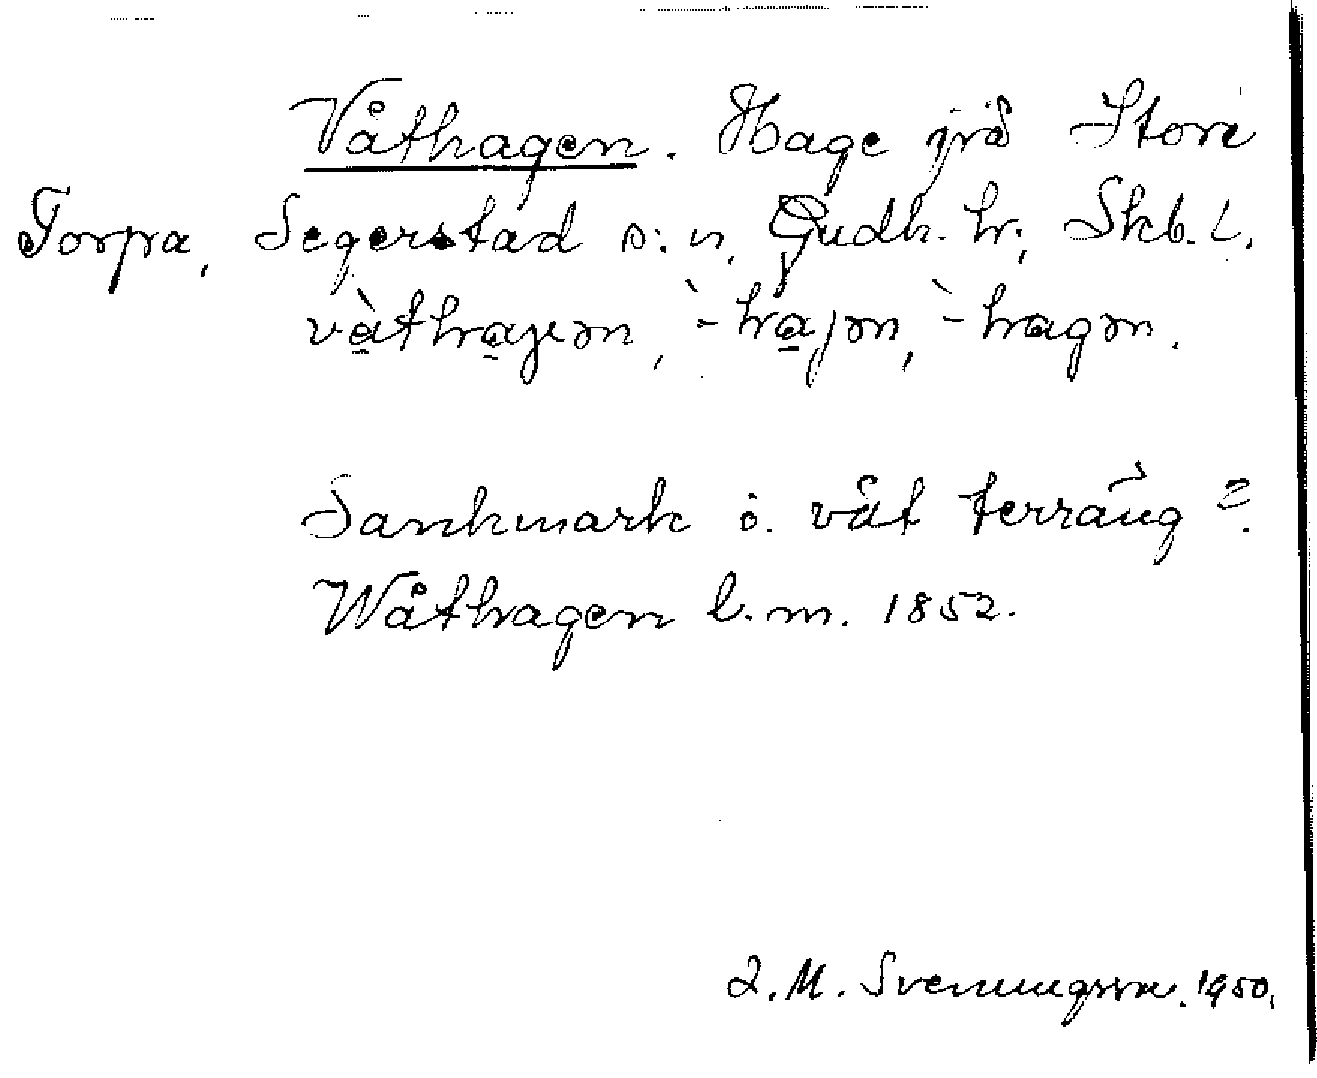 Våthagen. Hage på Stora
Torpa, Segerstad s:n, Gudh. hr, Skb. l.
vàthaɡən, `-hajən, `-hagən.
Sankmark o. våt terräng?
Wåthagen l.m. 1852.
I. M. Svenningsson. 1950.